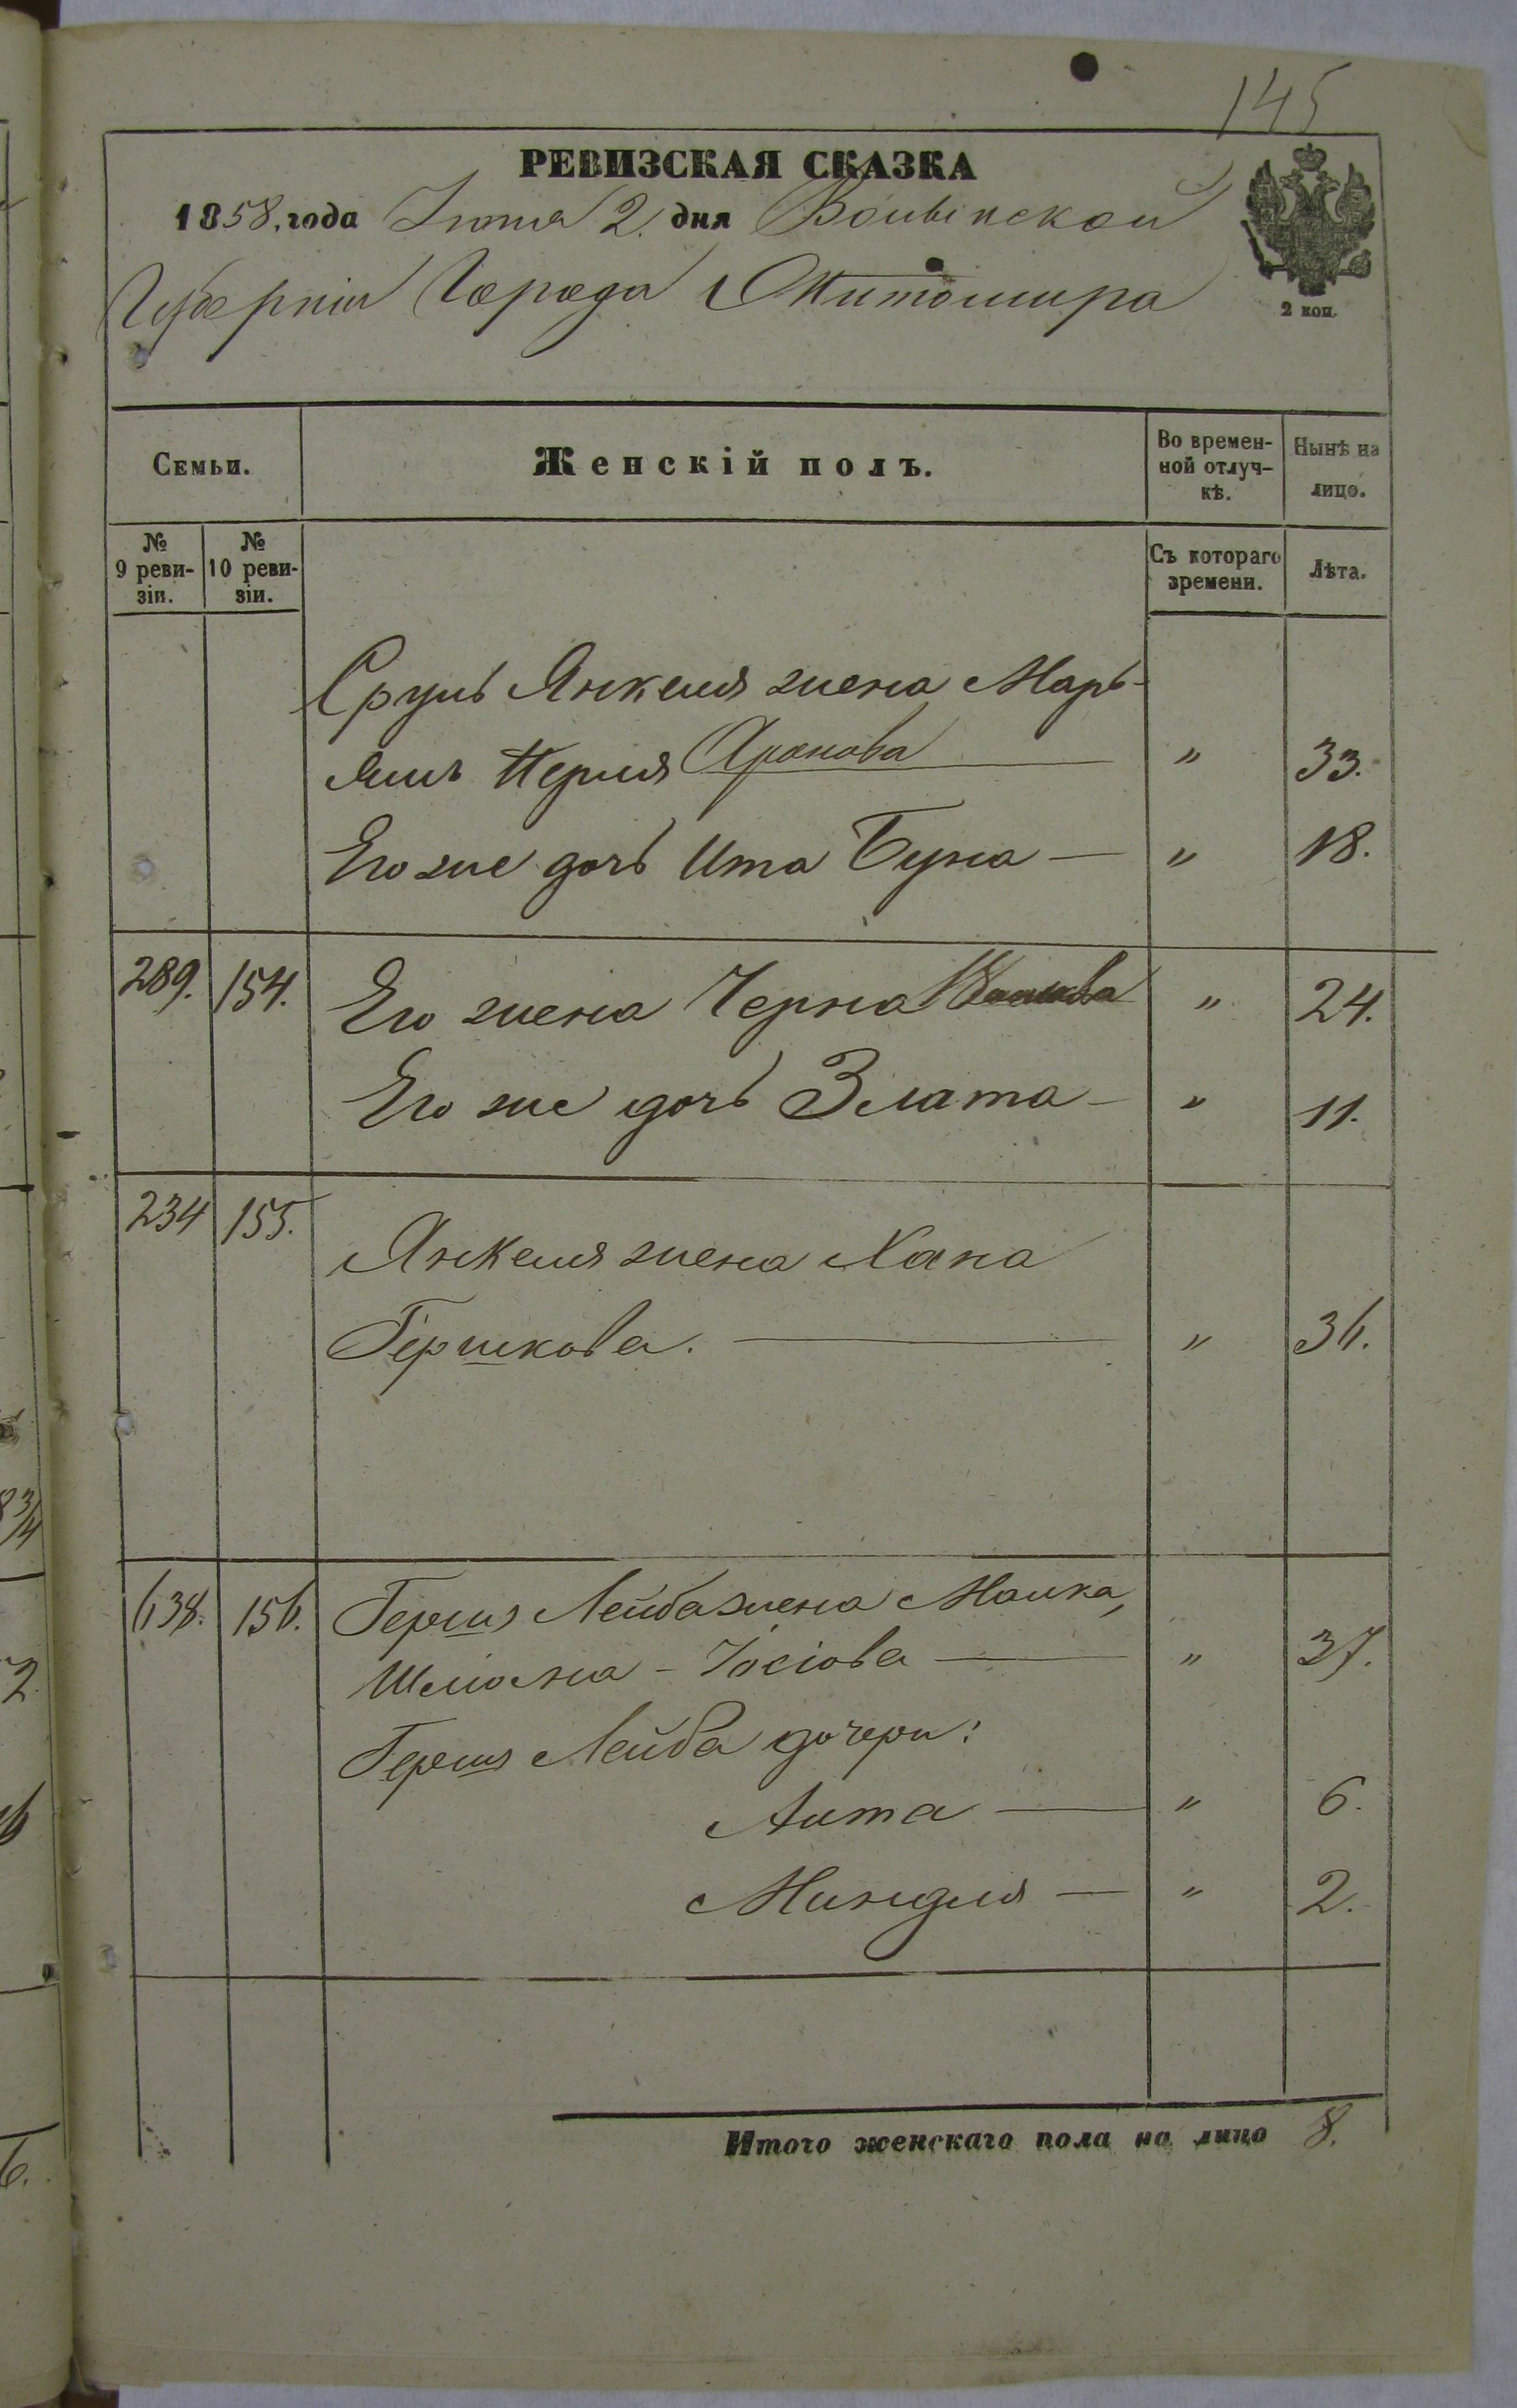 145
РЕВИЗСКАЯ СКАЗКА
1858. года Іюня 2. дня Волынской
Губерніи Города Житомира
2 коп.
Семьи.
Женскій полъ.
Во времен-
ной отлуч-
кѣ.
Нынѣ на
лицо.
№
9 реви-
зіи.
№
10 реви-
зіи.
Съ котораго
времени.
Лѣта.
Сруль Янкеля жена Марь-
ямъ Перля Аронова — " 33.
Его же дочь Ита Буна — " 18.
289. 154. Его жена Черна " 24.
Его же дочь Злата — " 11.
234 155.
Янкеля жена Хана
Гершкова. — " 36.
638. 156. Герша Лейба жена Малка,
Шліома - Іосіова — " 37.
Герша Лейба дочери:
Лита — " 6.
Миндля — " 2.
Итого женскаго пола на лицо 8.